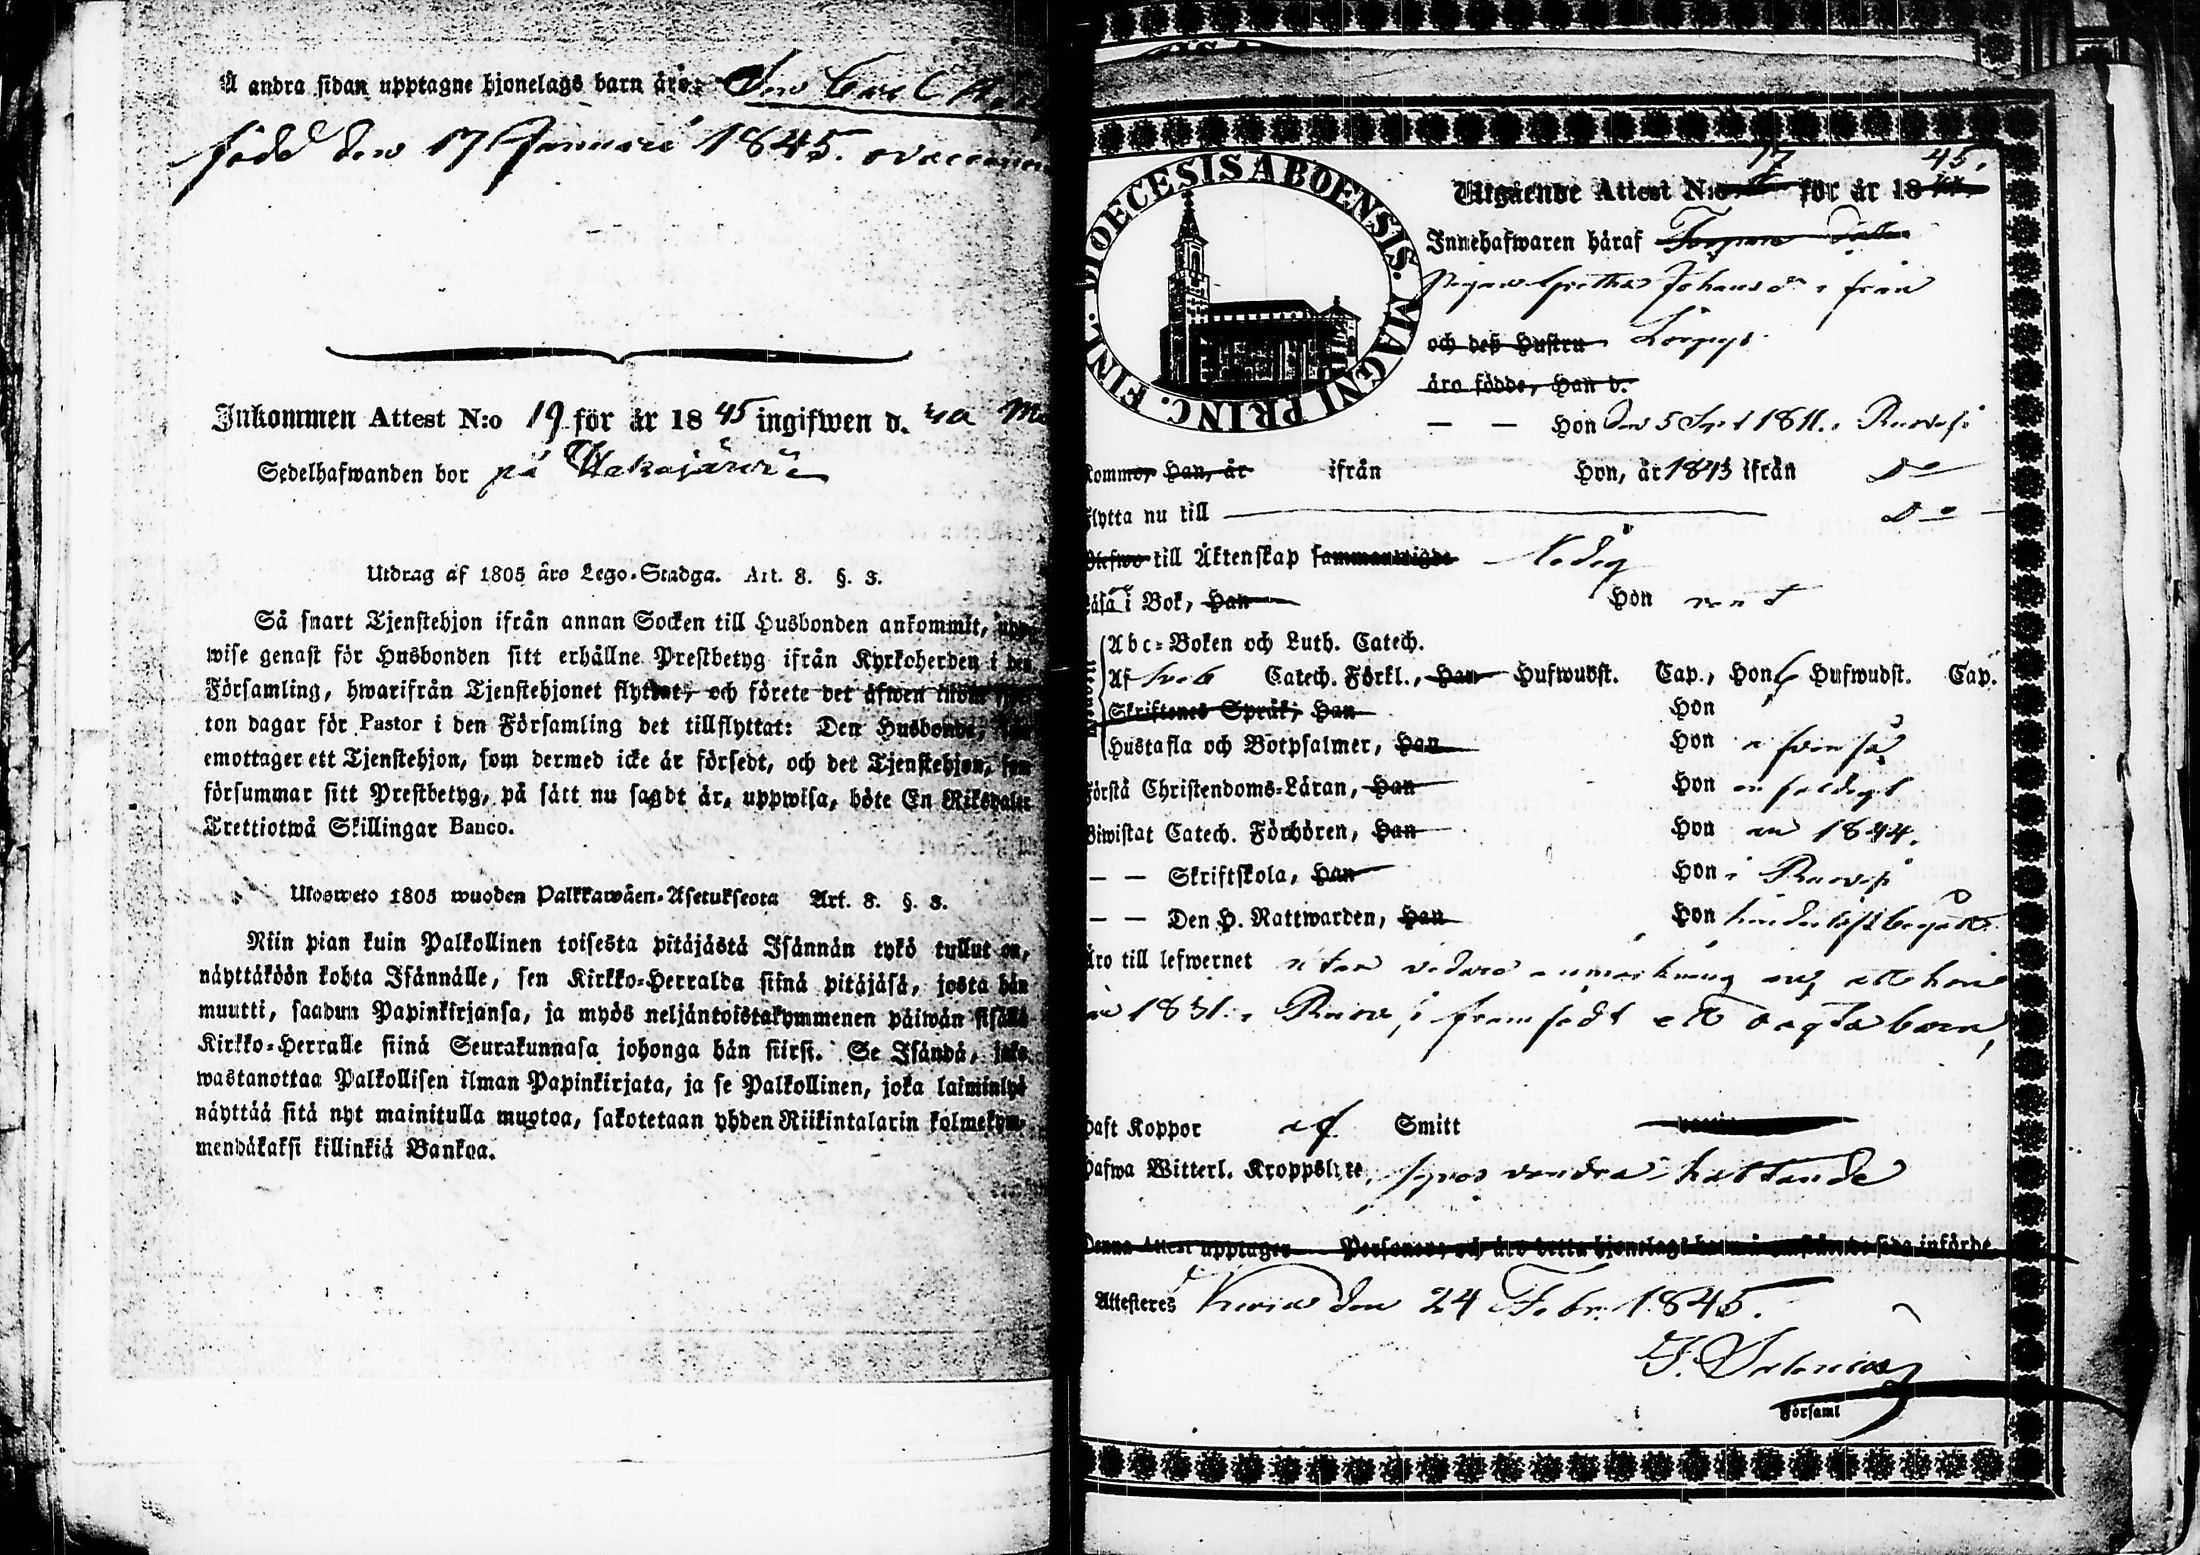 Å andra sidan upptagne hjonelags barn äro: Son Carl
född den 17 Januari 1845.
Inkommen Attest N:o 19 för år 18 45 ingifwen d.
Sedelhafwanden bor på
Utdrag af 1805 års Lego-Stadga. Art. 8. §. 3.
Så snart Tjenstehjon ifrån annan Socken till Husbonden ankommit, upp-
wise genast för Husbonden sitt erhållne Prestbetyg ifrån Kyrkoherden i den
Församling, hwarifrån Tjenstehjonet flyttat, och förete det äfwen inom
ton dagar för Pastor i den Församling det tillflyttat: Den Husbonde,
emottager ett Tjenstehjon, som dermed icke är försedt, och det Tjenstehjon, som
försummar sitt Prestbetyg, på sätt nu sagdt är, uppwisa, böte En Riksdaler
Trettiotwå Skillingar Banco.
Ulosweto 1805 wuoden Palkkawäen-Asetuksesta Art. 8. §. 3.
Niin pian kuin Palkollinen toisesta pitäjästä Isännän tykö tullut on,
näyttäköön kohta Isännälle, sen Kirkko-Herralda siinä pitäjäsä, josta hän
muutti, saadun Papinkirjansa, ja myös neljäntoistakymmenen päiwän sisällä
Kirkko-Herralle siinä Seurakunnasa johonga hän siirsi. Se Isändä, joka
wastanottaa Palkollisen ilman Papinkirjata, ja se Palkollinen, joka laiminlyö
näyttää sitä nyt mainitulla muotoa, sakotetaan yhden Riikintalarin kolmekym-
mendäkaksi killinkiä Bankoa.
DIOECESIS ABOENSIS. MAGNI PRINC. FINL.
Utgående Attest N:o 17 för år 18 45.
Innehafwaren häraf
Pigan Gretha Johansdr från
och deß Hustru
äro födde, Han d.
— — Hon den 5 Sept 1811 i Ruovesi
kommo, Han, år ifrån Hon, år 1843 ifrån Do
flytta nu till Do
Blefwo till Äktenskap sammanwigde Ledig
Läsa i Bok, Han Hon rent
Abc-Boken och Luth. Catech.
Af Sveb Catech. Förkl., Han Hufwudst. Cap., Hon 6 Hufwudst. Cap.
Skriftenes Språk, Han Hon
Hustafla och Botpsalmer, Han Hon
Förstå Christendoms-Läran, Han Hon enfaldigt
Biwistat Catech. Förhören, Han Hon 1844.
— — Skriftskola, Han Hon i Ruovesi
— — Den H. Nattwarden, Han Hon
Äro till lefwernet utan vidare anmärkning än att hon
1831 i Ruovesi framfödt ett oägta barn,
Haft Koppor af Smitt
Hafwa Witterl. Kroppslyte,
Denna Attest upptager Personer, och äro detta hjonelags barn å omstående sida införde.
Attesteres Kuru den 24 Febr. 1845.
i Församl